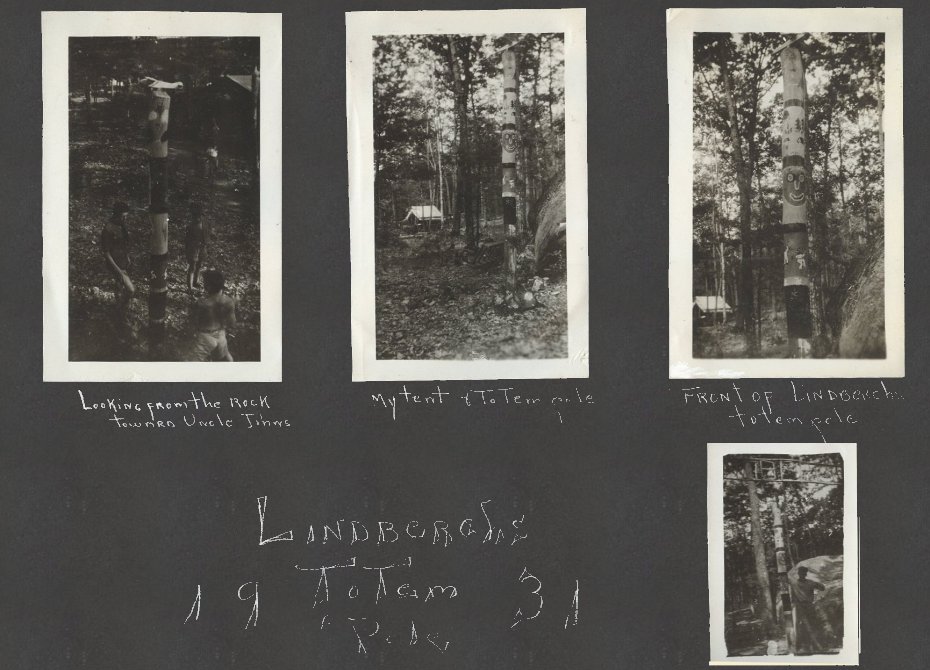 Looking from the Rock
toward Uncle Johns
My tent & ToTem pole
Front of Lindbergh
totem pole
Lindberghs
19 ToTem 31
Pole